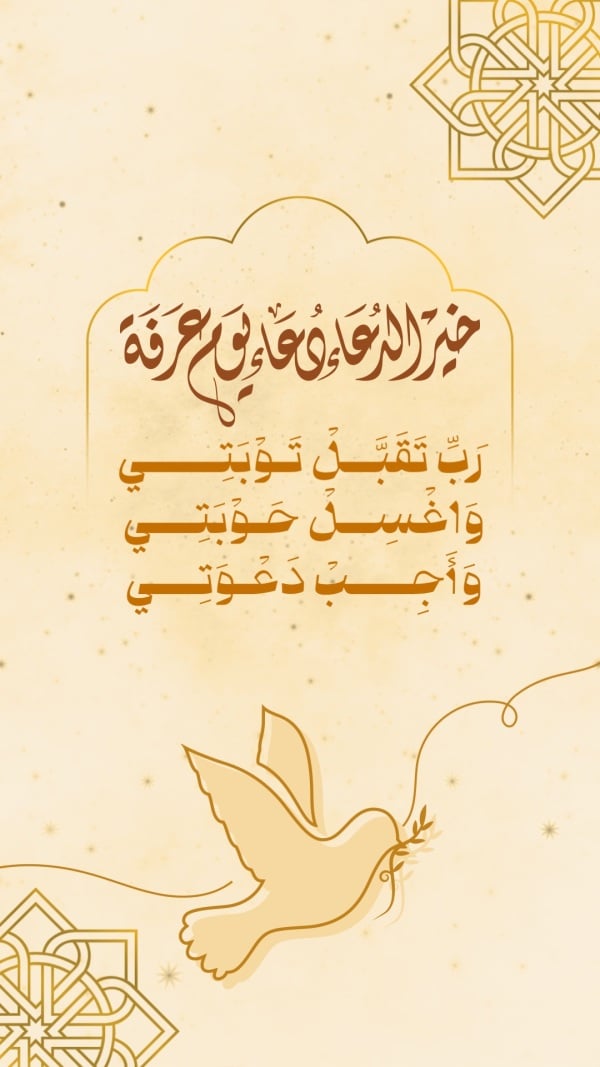 خير الدعاء دُعَاء يَوم عَرَفَة
رَبِّ تَقَبَّلْ تَوْبَتِي
وَاغْسِلْ حَوْبَتِي
وَأَجِبْ دَعْوَتِي